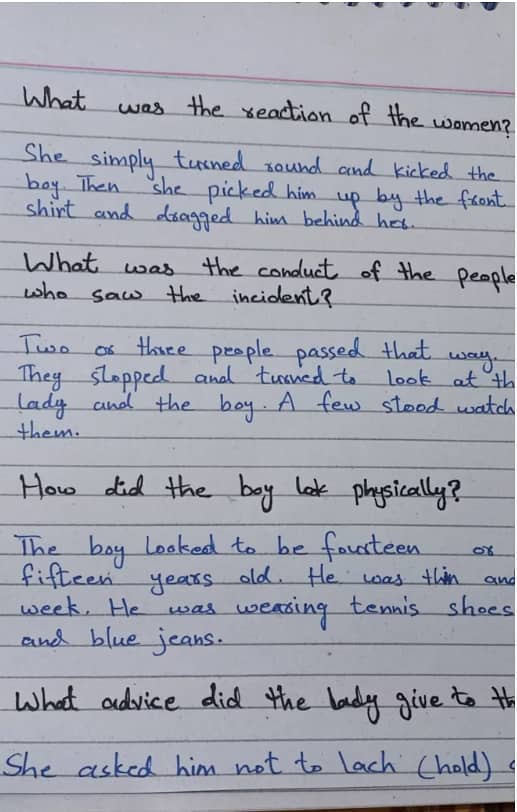 What was the reaction of the women?
She simply turned round and kicked the
boy. Then she picked him up by the front
shirt and dragged him behind her.
What was the conduct of the people
who saw the incident?
Two or three people passed that way.
They stopped and turned to look at th
lady and the boy. A few stood watch
them.
How did the boy lok physically?
The boy looked to be fourteen or
fifteen years old. He was thin and
week. He was wearing tennis shoes
and blue jeans.
What advice did the lady give to th
She asked him not to lach (hold)